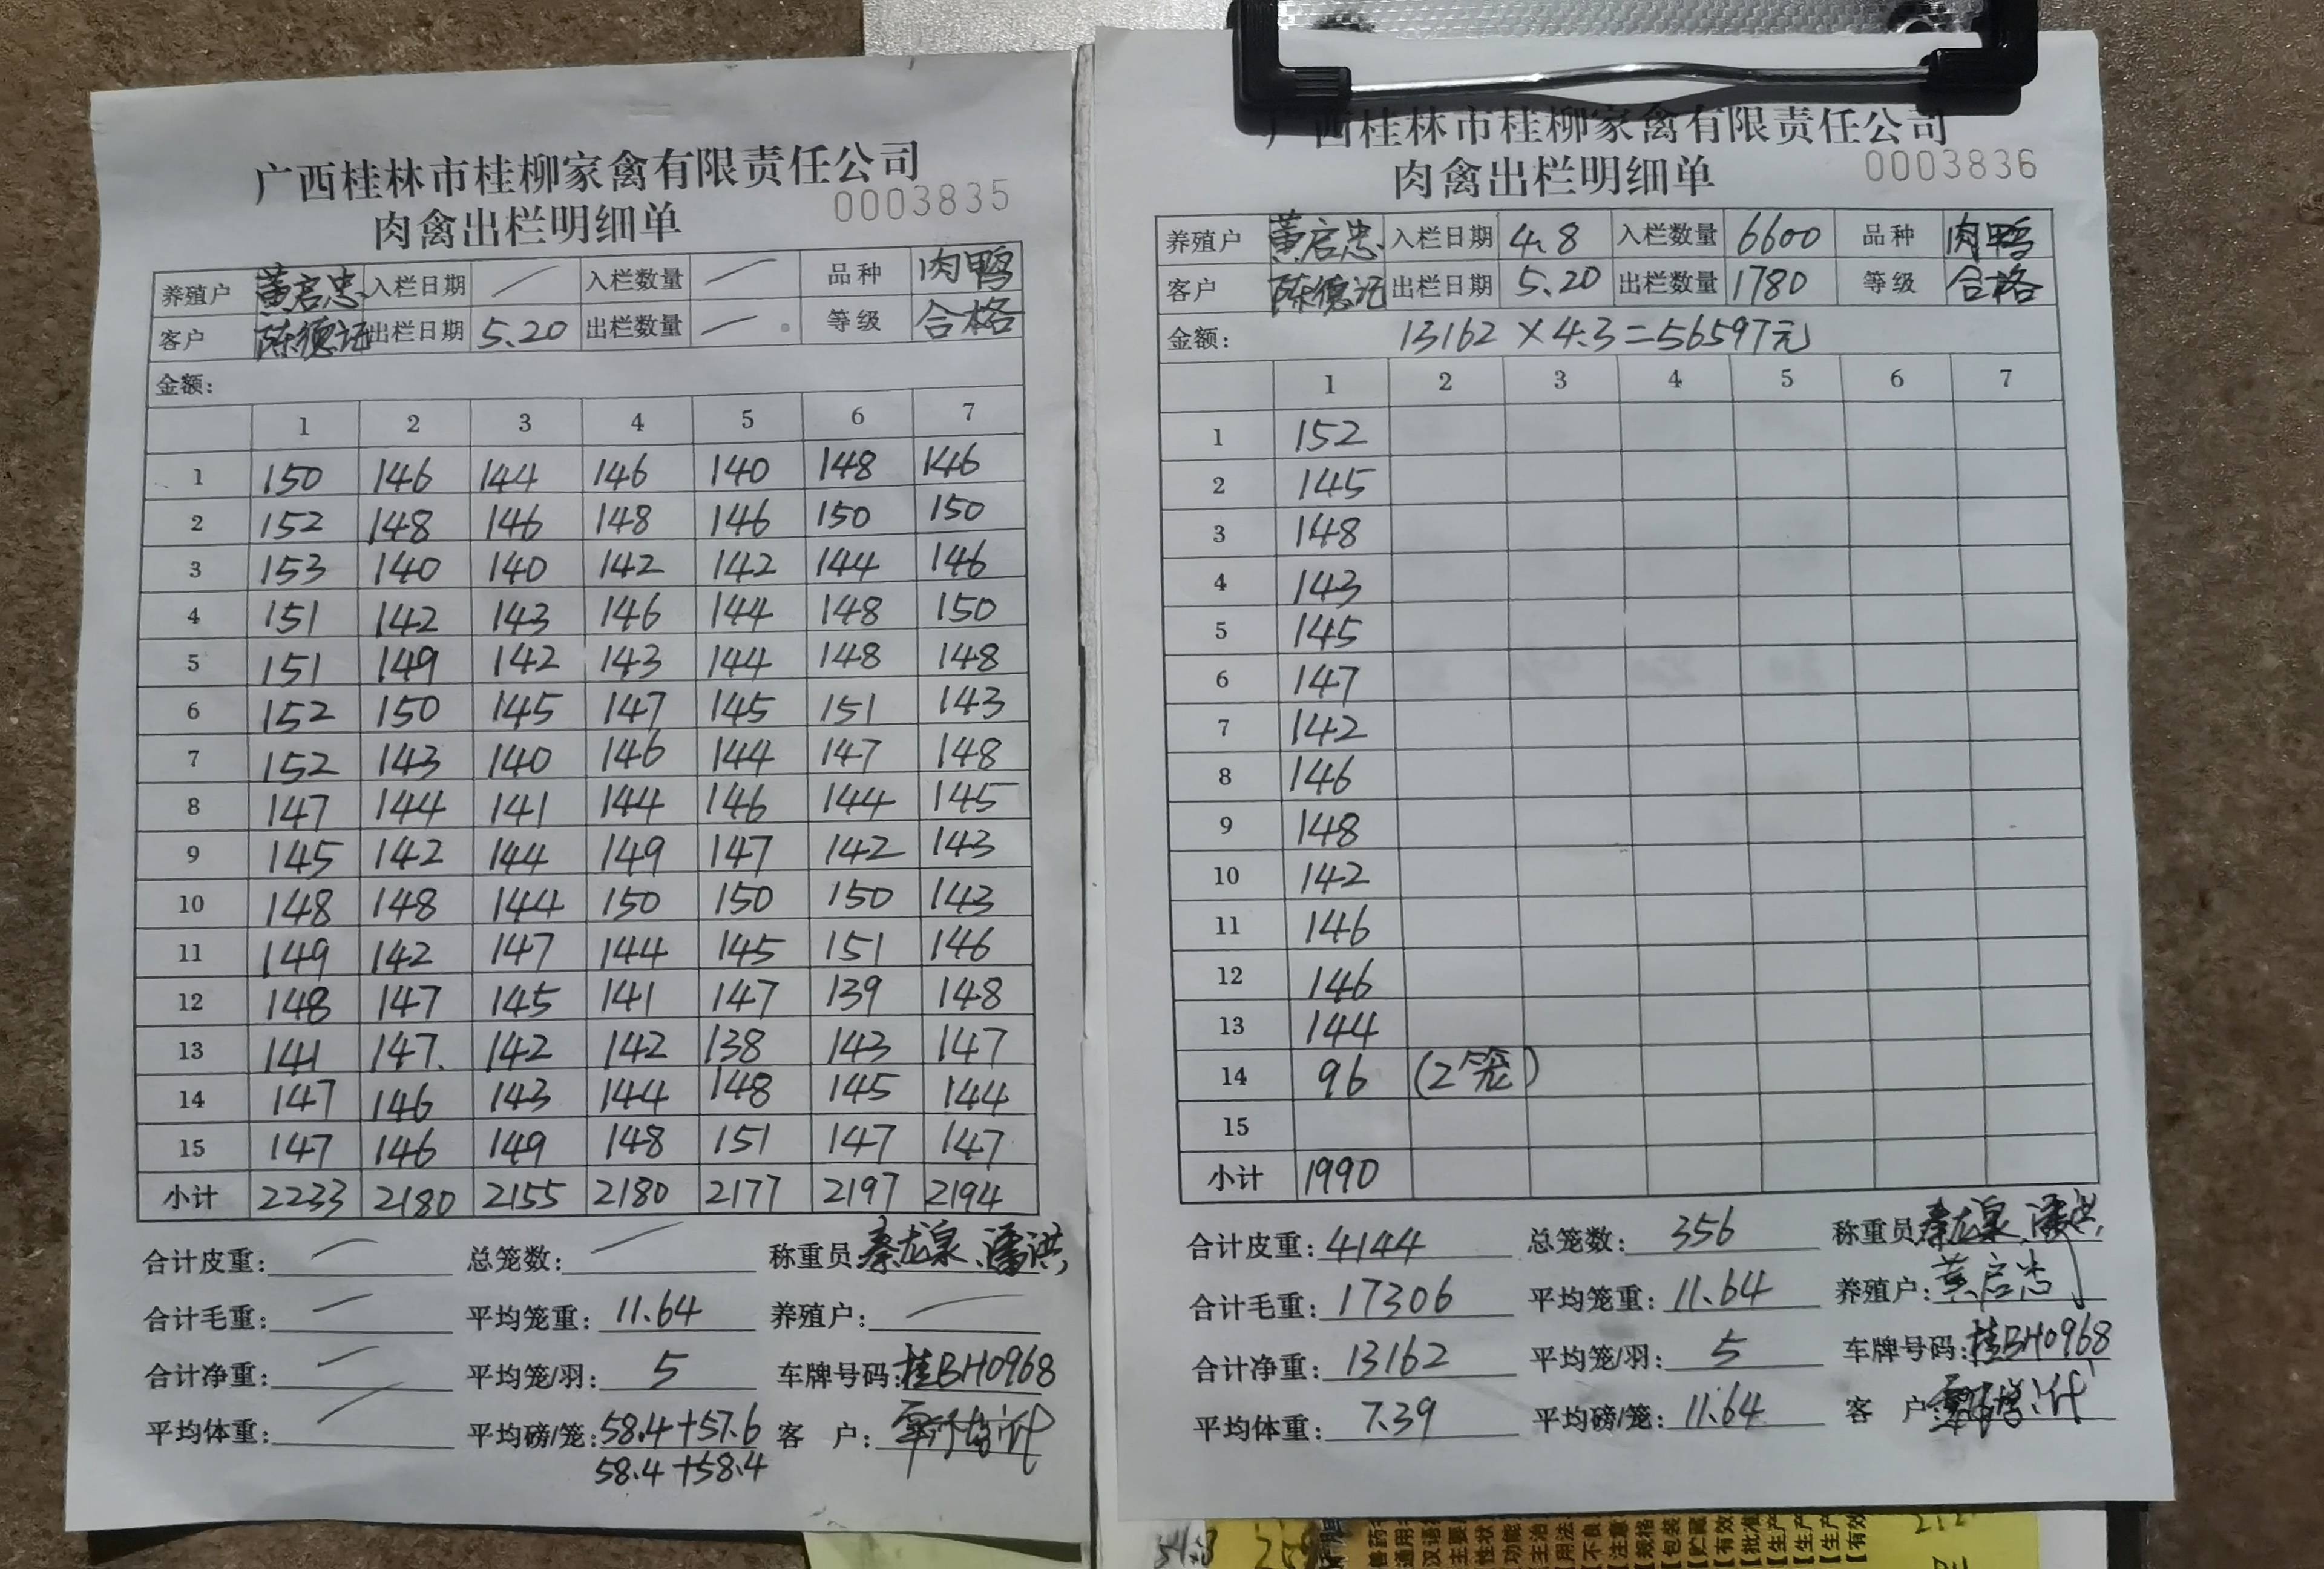 广西桂林市桂柳家禽有限责任公司
肉禽出栏明细单 0003835
养殖户 黄启忠 入栏日期 / 入栏数量 / 品种 肉鸭
客户 陈德记 出栏日期 5.20 出栏数量 / 等级 合格
金额:
1 2 3 4 5 6 7
1 150 146 144 146 140 148 146
2 152 148 146 148 146 150 150
3 153 140 140 142 142 144 146
4 151 142 143 146 144 148 150
5 151 149 142 143 144 148 148
6 152 150 145 147 145 151 143
7 152 143 140 146 144 147 148
8 147 144 141 144 146 144 145
9 145 142 144 149 147 142 143
10 148 148 144 150 150 150 143
11 149 142 147 144 145 151 146
12 148 147 145 141 147 139 148
13 141 147. 142 142 138 143 147
14 147 146 143 144 148 145 144
15 147 146 149 148 151 147 147
小计 2233 2180 2155 2180 2177 2197 2194
合计皮重: / 总笼数: / 称重员 秦龙泉、潘洪
合计毛重: / 平均笼重: 11.64 养殖户: /
合计净重: / 平均笼/羽: 5 车牌号码: 桂BH0968
平均体重: / 平均磅/笼: 58.4+57.6 客户:
58.4+58.4
广西桂林市桂柳家禽有限责任公司
肉禽出栏明细单 0003836
养殖户 黄启忠 入栏日期 4.8 入栏数量 6600 品种 肉鸭
客户 陈德记 出栏日期 5.20 出栏数量 1780 等级 合格
金额: 13162×4.3=56597元
1 2 3 4 5 6 7
1 152
2 145
3 148
4 143
5 145
6 147
7 142
8 146
9 148
10 142
11 146
12 146
13 144
14 96 (2笼)
15
小计 1990
合计皮重: 4144 总笼数: 356 称重员 秦龙泉、潘洪
合计毛重: 17306 平均笼重: 11.64 养殖户: 黄启忠
合计净重: 13162 平均笼/羽: 5 车牌号码: 桂BH0968
平均体重: 7.39 平均磅/笼: 11.64 客户: